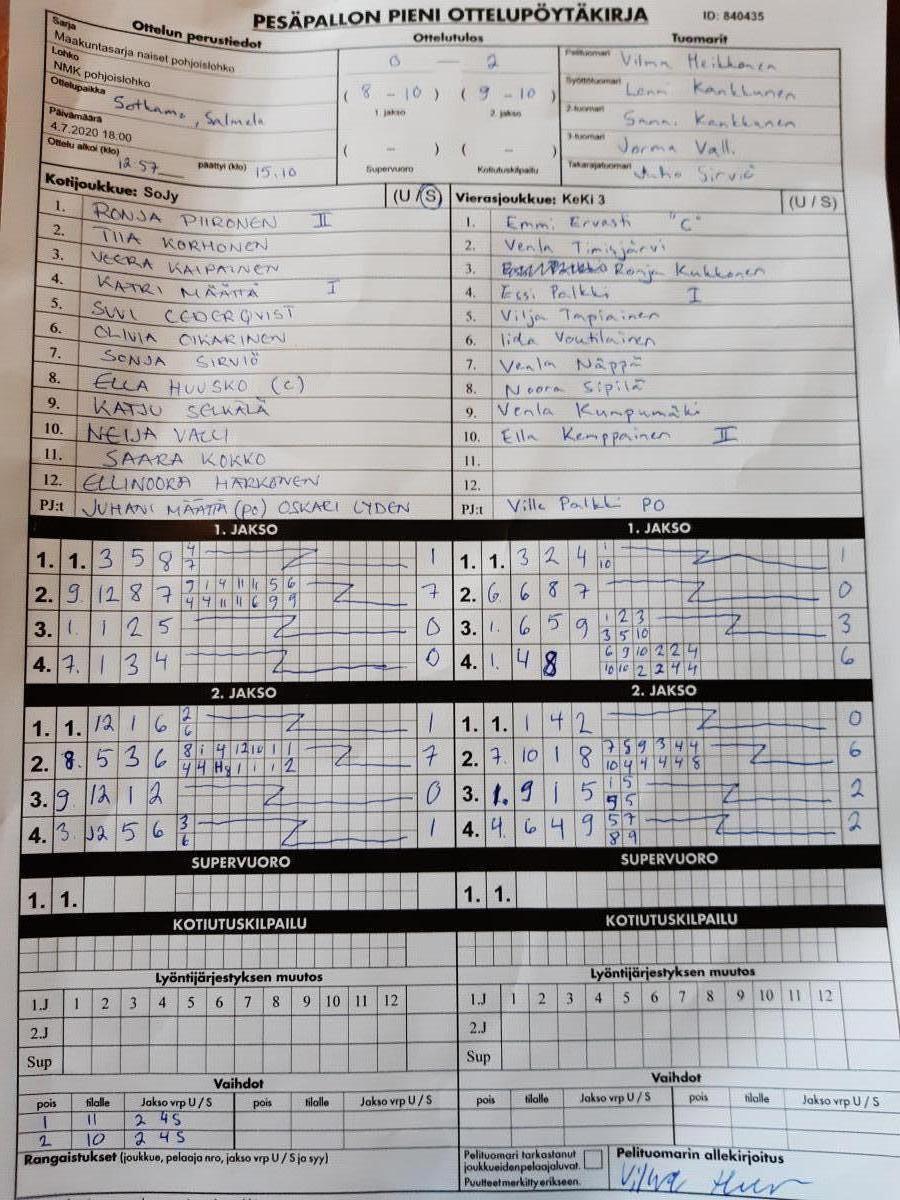 PESÄPALLON PIENI OTTELUPÖYTÄKIRJA ID: 840435
Ottelun perustiedot Ottelutulos Tuomarit
Sarja
Maakuntasarja naiset pohjoislohko
Lohko
NMK pohjoislohko
Ottelupaikka Sotkamo, Salmela
Päivämäärä
4.7.2020 18:00
Ottelu alkoi (klo) 12 57 päättyi (klo) 15.10
0 — 2
( 8 - 10 ) ( 9 - 10 )
1. jakso 2. jakso
( - ) ( - )
Supervuoro Kotiutuskilpailu
Pelituomari Vilma Heikkonen
Syöttötuomari Lenni Kankkunen
2-tuomari Sanni Kankkunen
3-tuomari Jorma Vall.
Takarajatuomari Juho Sirviö
Kotijoukkue: SoJy (U / S)
1. RONJA PIIRONEN II
2. TIIA KORHONEN
3. VEERA KAIPAINEN
4. KATRI MÄÄTTÄ I
5. SUVI CEDERQVIST
6. OLIVIA OIKARINEN
7. SONJA SIRVIÖ
8. ELLA HUUSKO (C)
9. KATJU SELKÄLÄ
10. NEIJA VALLI
11. SAARA KOKKO
12. ELLINOORA HÄRKÖNEN
PJ:t JUHANI MÄÄTTÄ (PO) OSKARI LYDEN
Vierasjoukkue: KeKi 3 (U / S)
1. Emmi Ervasti "C"
2. Venla Timisjärvi
3. Ronja Kukkonen
4. Essi Palkki I
5. Vilja Tapiainen
6. Iida Voutilainen
7. Venla Näppä
8. Noora Sipilä
9. Venla Kumpumäki
10. Ella Kemppainen II
11.
12.
PJ:t Ville Palkki PO
1. JAKSO
1. 1. 3 5 8 4 1
7
2. 9 12 8 7 9 1 4 11 11 5 6 7
4 4 11 11 6 9 9
3. 1. 1 2 5 0
4. 7. 1 3 4 0
1. JAKSO
1. 1. 3 2 4 1 1
10
2. 6 6 8 7 0
3. 1. 6 5 9 1 2 3 3
3 5 10
4. 1. 4 8 6 9 10 2 2 4 6
10 10 2 2 4 4
2. JAKSO
1. 1. 12 1 6 2 1
6
2. 8. 5 3 6 8 1 4 12 10 1 1 7
4 4 1 1 1 2
3. 9 12 1 2 0
4. 3. 12 5 6 3 1
6
2. JAKSO
1. 1. 1 4 2 0
2. 7. 10 1 8 7 5 9 3 4 4 6
10 4 4 4 4 8
3. 1. 9 1 5 1 5 2
9 5
4. 4. 6 4 9 5 7 2
8 9
SUPERVUORO
1. 1.
SUPERVUORO
1. 1.
KOTIUTUSKILPAILU
KOTIUTUSKILPAILU
Lyöntijärjestyksen muutos
1.J 1 2 3 4 5 6 7 8 9 10 11 12
2.J
Sup
Lyöntijärjestyksen muutos
1.J 1 2 3 4 5 6 7 8 9 10 11 12
2.J
Sup
Vaihdot
pois tilalle Jakso vrp U / S pois tilalle Jakso vrp U / S
1 11 2 4S
2 10 2 4S
Vaihdot
pois tilalle Jakso vrp U / S pois tilalle Jakso vrp U / S
Rangaistukset (joukkue, pelaaja nro, jakso vrp U / S ja syy)
Pelituomari tarkastanut
joukkueiden pelaajaluvat.
Puutteet merkitty erikseen.
Pelituomarin allekirjoitus